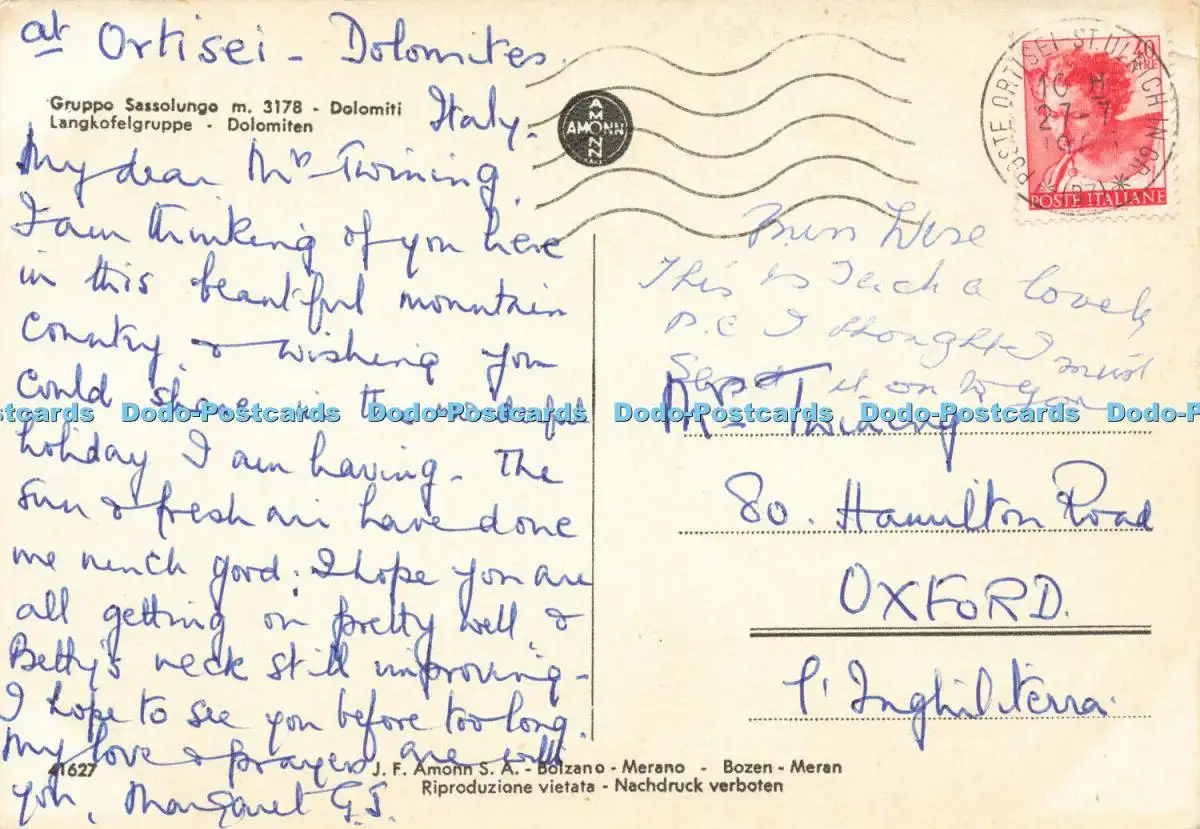 at Ortisei - Dolomites.
Gruppo Sassolungo m. 3178 - Dolomiti
Langkofelgruppe - Dolomiten
Italy.
My dear Mrs Twining
I am thinking of you here
in this beautiful mountain
country & wishing you
could share in the wonderful
holiday I am having. The
sun & fresh air have done
me much good. I hope you are
all getting on pretty well &
Betty's neck still improving -
I hope to see you before too long.
My love & prayers are with
you, Margaret G.S.
41627
AMONN
AMONN
40
LIRE
POSTE ITALIANE
POSTE ORTISEI-ST.ULRICH IN GR.
27-7
This is such a lovely
P.C I thought I must
send it on to you
Mrs Twining
80. Hamilton Road
OXFORD.
l'Inghilterra.
J. F. Amonn S. A. - Bolzano - Merano - Bozen - Meran
Riproduzione vietata - Nachdruck verboten
Dodo-Postcards Dodo-Postcards Dodo-Postcards Dodo-Postcards